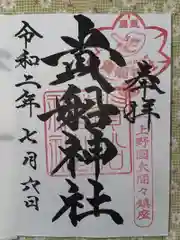 奉拝
上野國大間々鎮座
貴船神社
令和二年七月六日